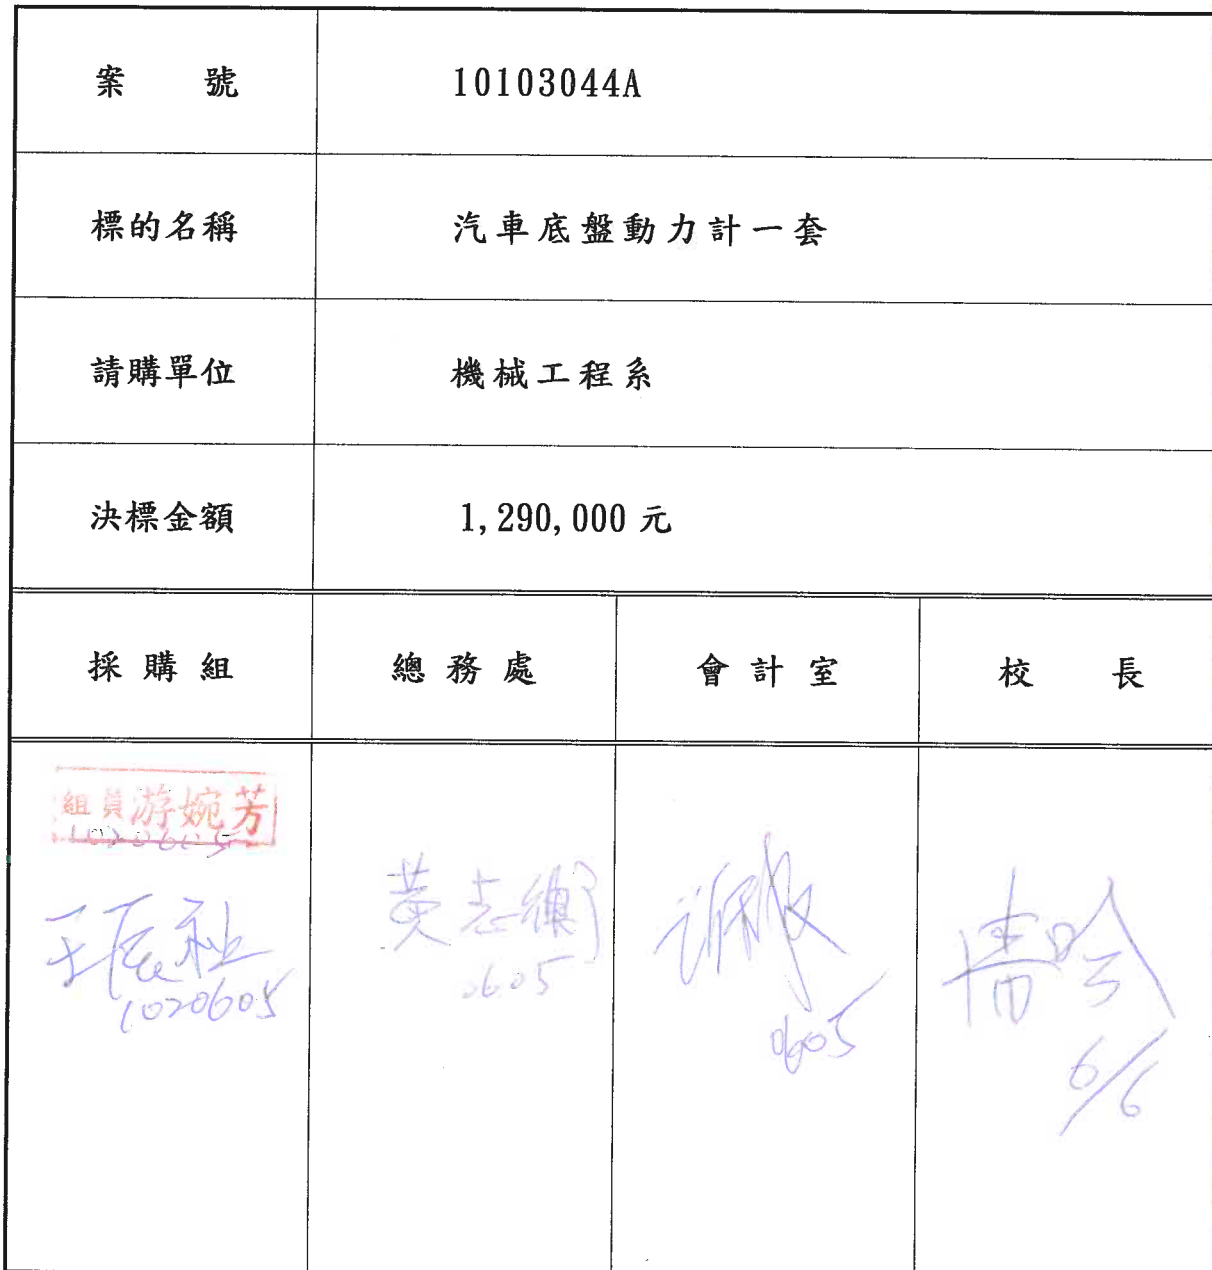 案號 10103044A
標的名稱 汽車底盤動力計一套
請購單位 機械工程系
決標金額 1,290,000 元
採購組 總務處 會計室 校長
組員游婉芳
1020605
黃志
1020605
0605
0605
6/6